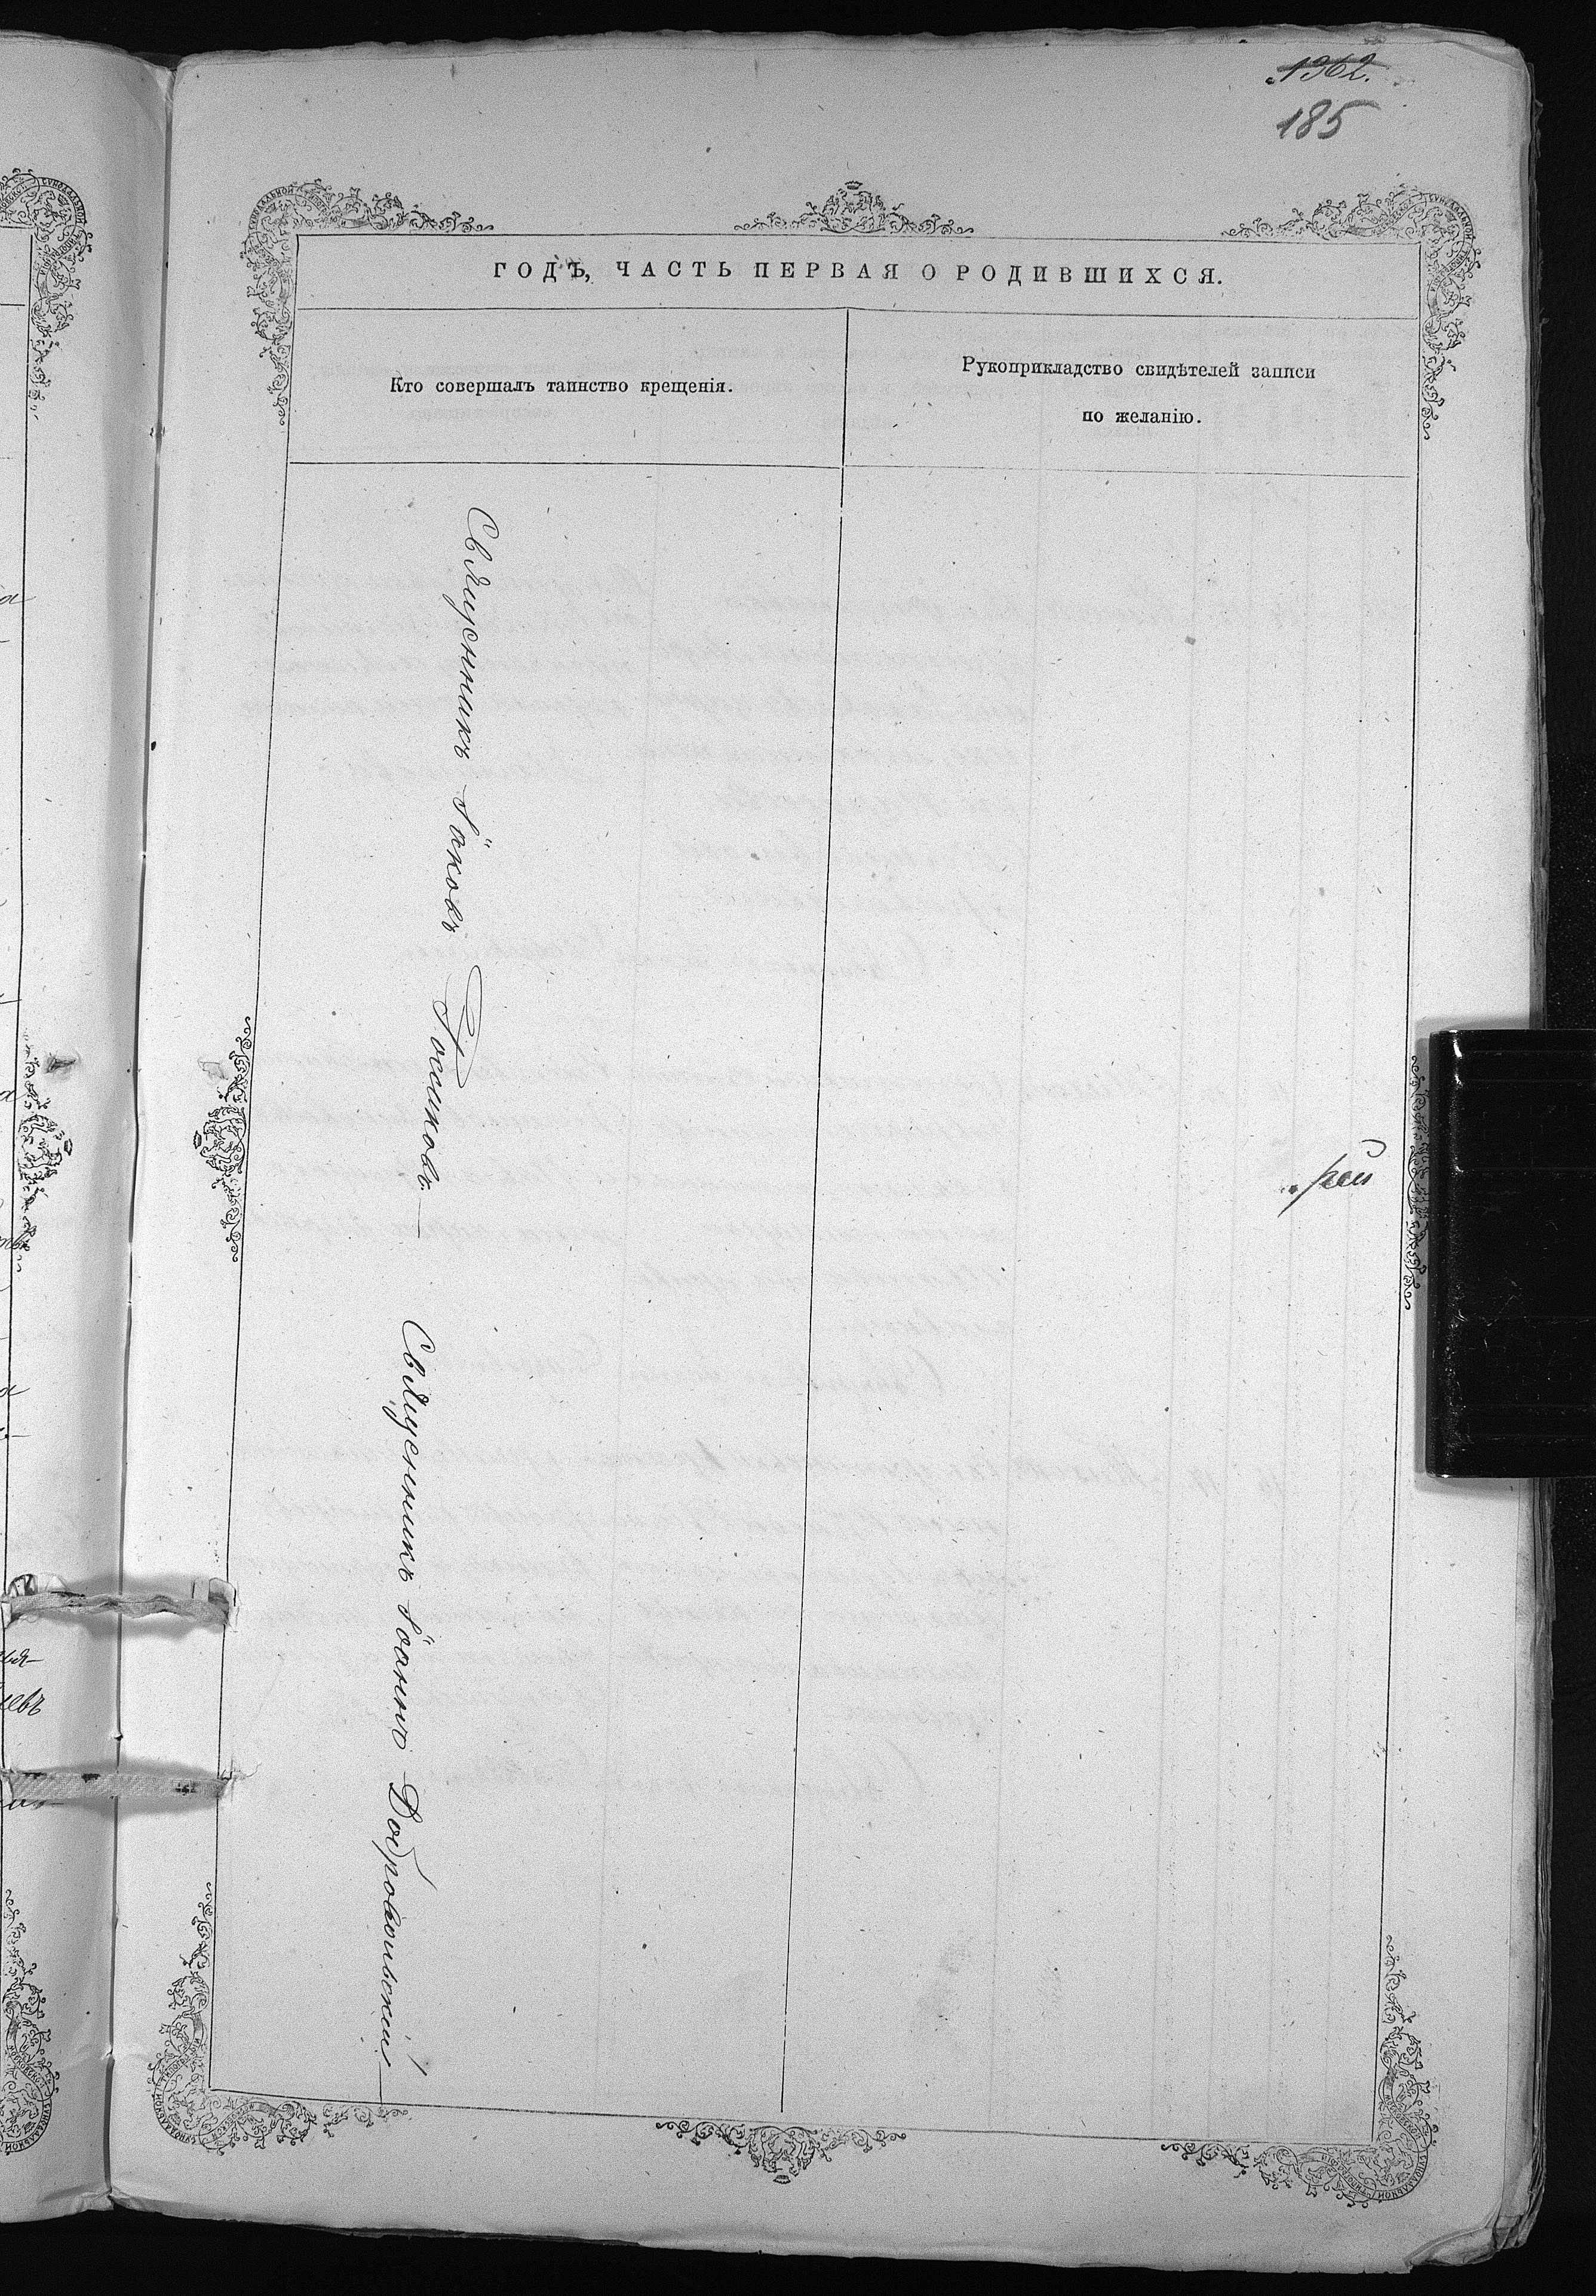 1362.
185
ГОДЪ, ЧАСТЬ ПЕРВАЯ О РОДИВШИХСЯ.
Кто совершалъ таинство крещенія.
Рукоприкладство свидѣтелей записи
по желанію.
Священникъ Іаковъ Россиковъ.
рей
Священникъ Іоаннъ Добровольскій